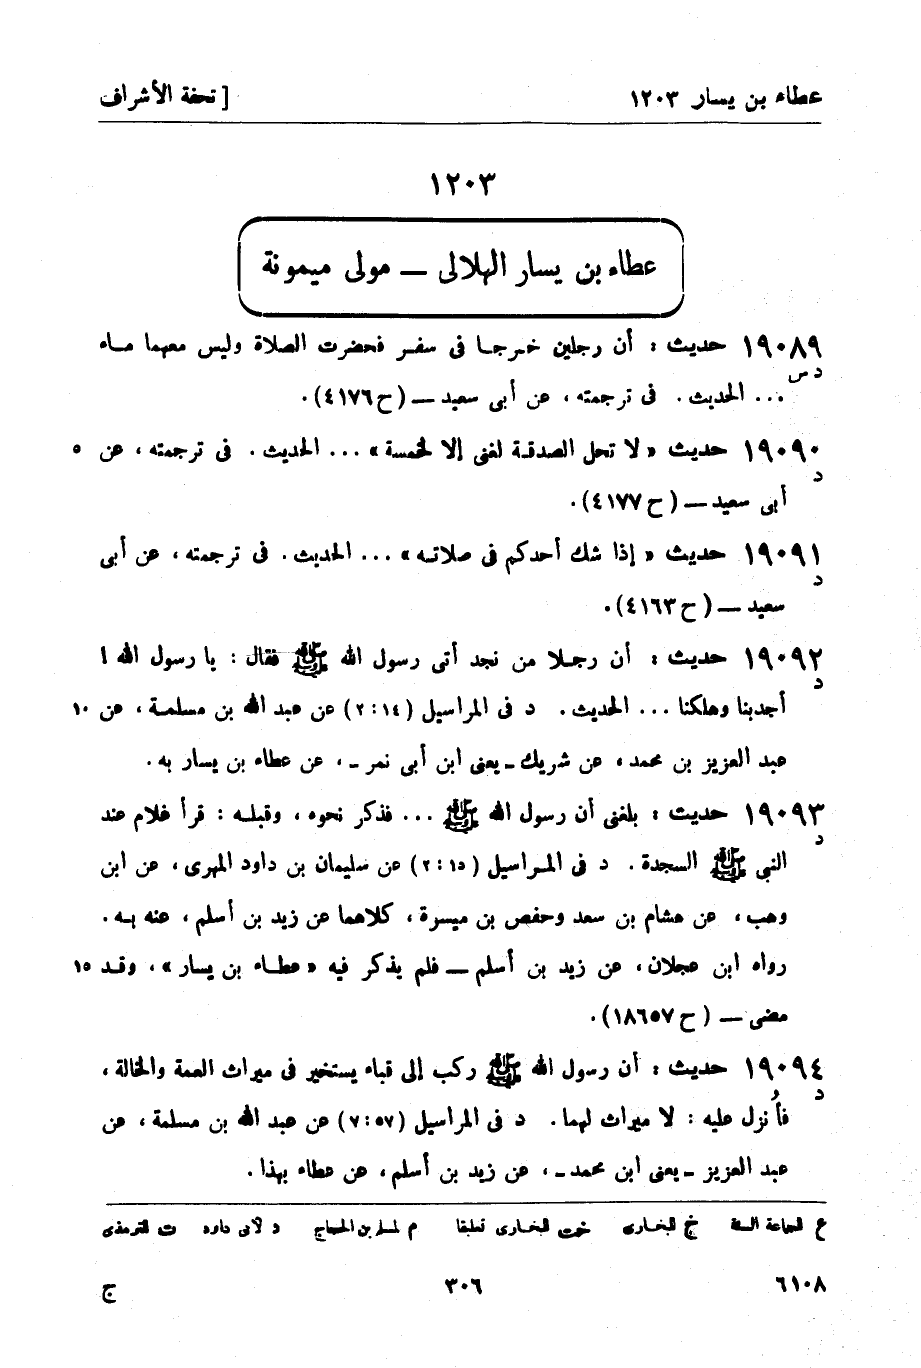 عطاء بن يسار ١٢٠٣ [ تحفة الأشراف
١٢٠٣
عطاء بن يسار الهلالى — مولى ميمونة
١٩٠٨٩ حديث : أن رجلين خرجا فى سفر فحضرت الصلاة وليس معهما ماء
د س
... الحديث . فى ترجمته ، عن أبى سعيد — (ح ٤١٧٦).
١٩٠٩٠ حديث « لا تحل الصدقة لغنى إلا لخمسة » ... الحديث . فى ترجمته ، عن ٥
د
أبى سعيد — ( ح ٤١٧٧).
١٩٠٩١ حديث « إذا شك أحدكم فى صلاته » ... الحديث . فى ترجمته ، عن أبى
د
سعيد — ( ح ٤١٦٣).
١٩٠٩٢ حديث : أن رجلا من نجد أتى رسول الله ﷺ فقال : يا رسول الله !
د
أجدبنا وهلكنا ... الحديث . د فى المراسيل (١٤ : ٢) عن عبد الله بن مسلمة ، عن ١٠
عبد العزيز بن محمد ، عن شريك ـ يعنى ابن أبى نمر ـ ، عن عطاء بن يسار به .
١٩٠٩٣ حديث : بلغنى أن رسول الله ﷺ ... فذكر نحوه ، وقبله : قرأ غلام عند
د
النبى ﷺ السجدة . د فى المراسيل (١٥ : ٢) عن سليمان بن داود المهرى ، عن ابن
وهب ، عن هشام بن سعد وحفص بن ميسرة ، كلاهما عن زيد بن أسلم ، عنه به .
رواه ابن عجلان ، عن زيد بن أسلم — فلم يذكر فيه « عطاء بن يسار » ، وقد ١٥
مضى — ( ح ١٨٦٥٧).
١٩٠٩٤ حديث : أن رسول الله ﷺ ركب إلى قباء يستخير فى ميراث العمة والخالة ،
د
فأُنزل عليه : لا ميراث لهما . د فى المراسيل (٥٧ : ٧) عن عبد الله بن مسلمة ، عن
عبد العزيز ـ يعنى ابن محمد ـ ، عن زيد بن أسلم ، عن عطاء بهذا .
ع للجماعة الستة خ للبخارى خت للبخارى تعليقا م لمسلم بن الحجاج د لأبى داود ت للترمذى
٦١٠٨ ٣٠٦ ج